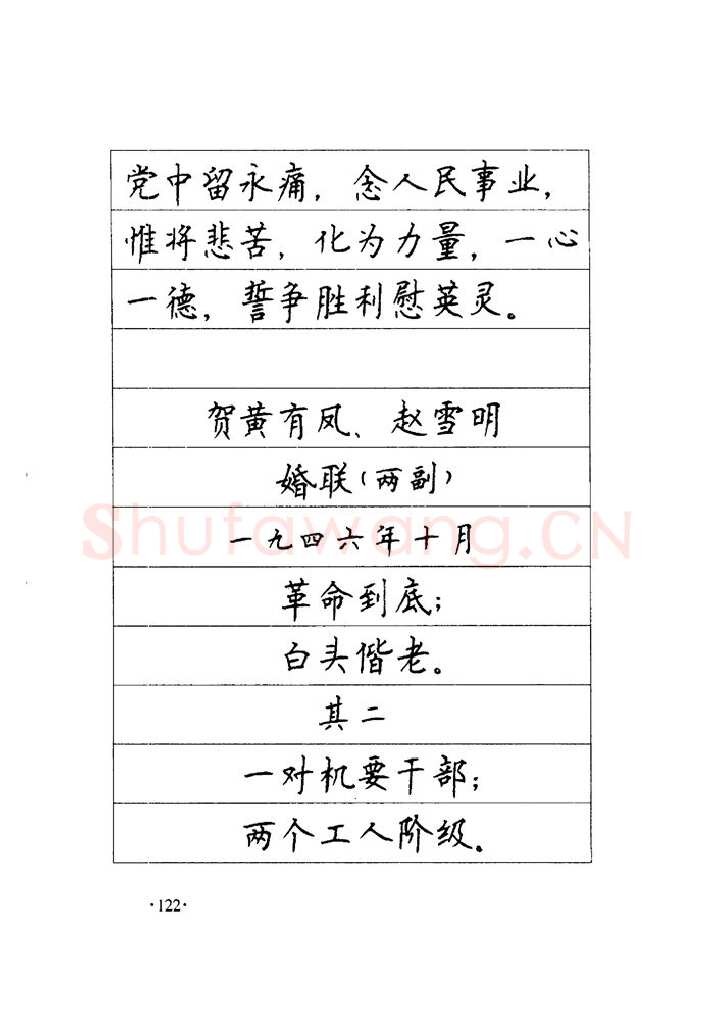 党中留永痛，念人民事业，
惟将悲苦，化为力量，一心
一德，誓争胜利慰英灵。
贺黄有凤、赵雪明
婚联（两副）
Shufawang.CN
一九四六年十月
革命到底；
白头偕老。
其二
一对机要干部；
两个工人阶级。
·122·